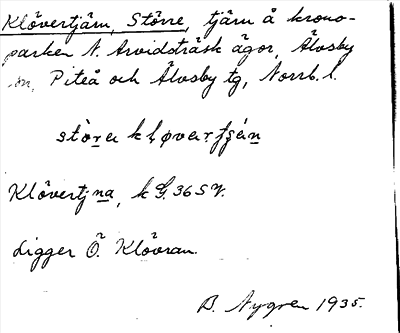 Klövertjärn, Större, tjärn å krono-
parken N. Arvidsträsk ägor, Älvsby
sn, Piteå och Älvsby tg, Norrb. l.
Klövertjna, k G. 36 S V.
Ligger Ö. Klövran.
B. Nygren 1935.